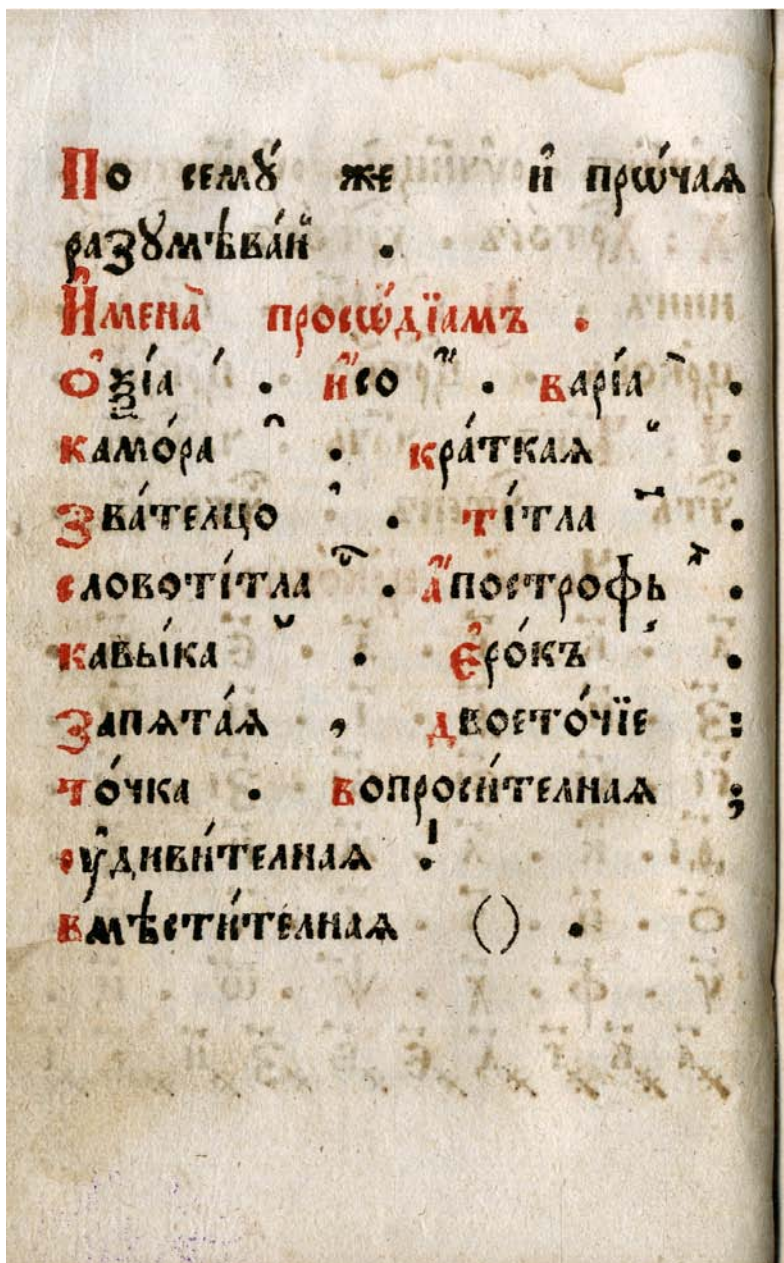 По семꙋ́ же и҆ прѡ́чаѧ
разꙋмѣва́й .
И҆мена̀ просѡ́дїамъ .
Ѻ҆ѯі́а ́ . и҆́со ҆́ . варі́а ̀ .
камо́ра ̑ . кра́ткаѧ ̆ .
Зва́телцо ҆ . ті́тла ҃ .
словоті́тла ⷭ҇ . а҆́построфь ҆̀ .
кавы́ка ̆ . є҆ро́къ ̾ .
Запѧта́ѧ , двоето́чїе :
то́чка . вопроси́телнаѧ ;
ᲂу҆диви́телнаѧ !
вмѣсти́телнаѧ () .